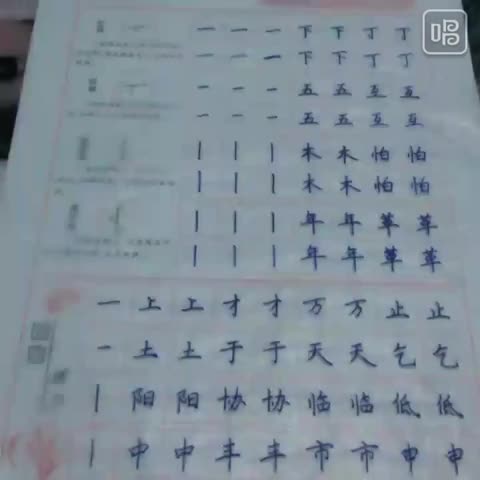 唱
一 一 一 下 下 丁 丁
一 一 一 下 下 丁 丁
一 一 一 五 五 互 互
一 一 一 五 五 互 互
丨 丨 丨 木 木 怕 怕
丨 丨 丨 木 木 怕 怕
丨 丨 丨 年 年 革 革
丨 丨 丨 年 年 革 革
一 上 上 才 才 万 万 止 止
一 土 土 于 于 天 天 乞 乞
丨 阳 阳 协 协 临 临 低 低
丨 中 中 丰 丰 市 市 申 申